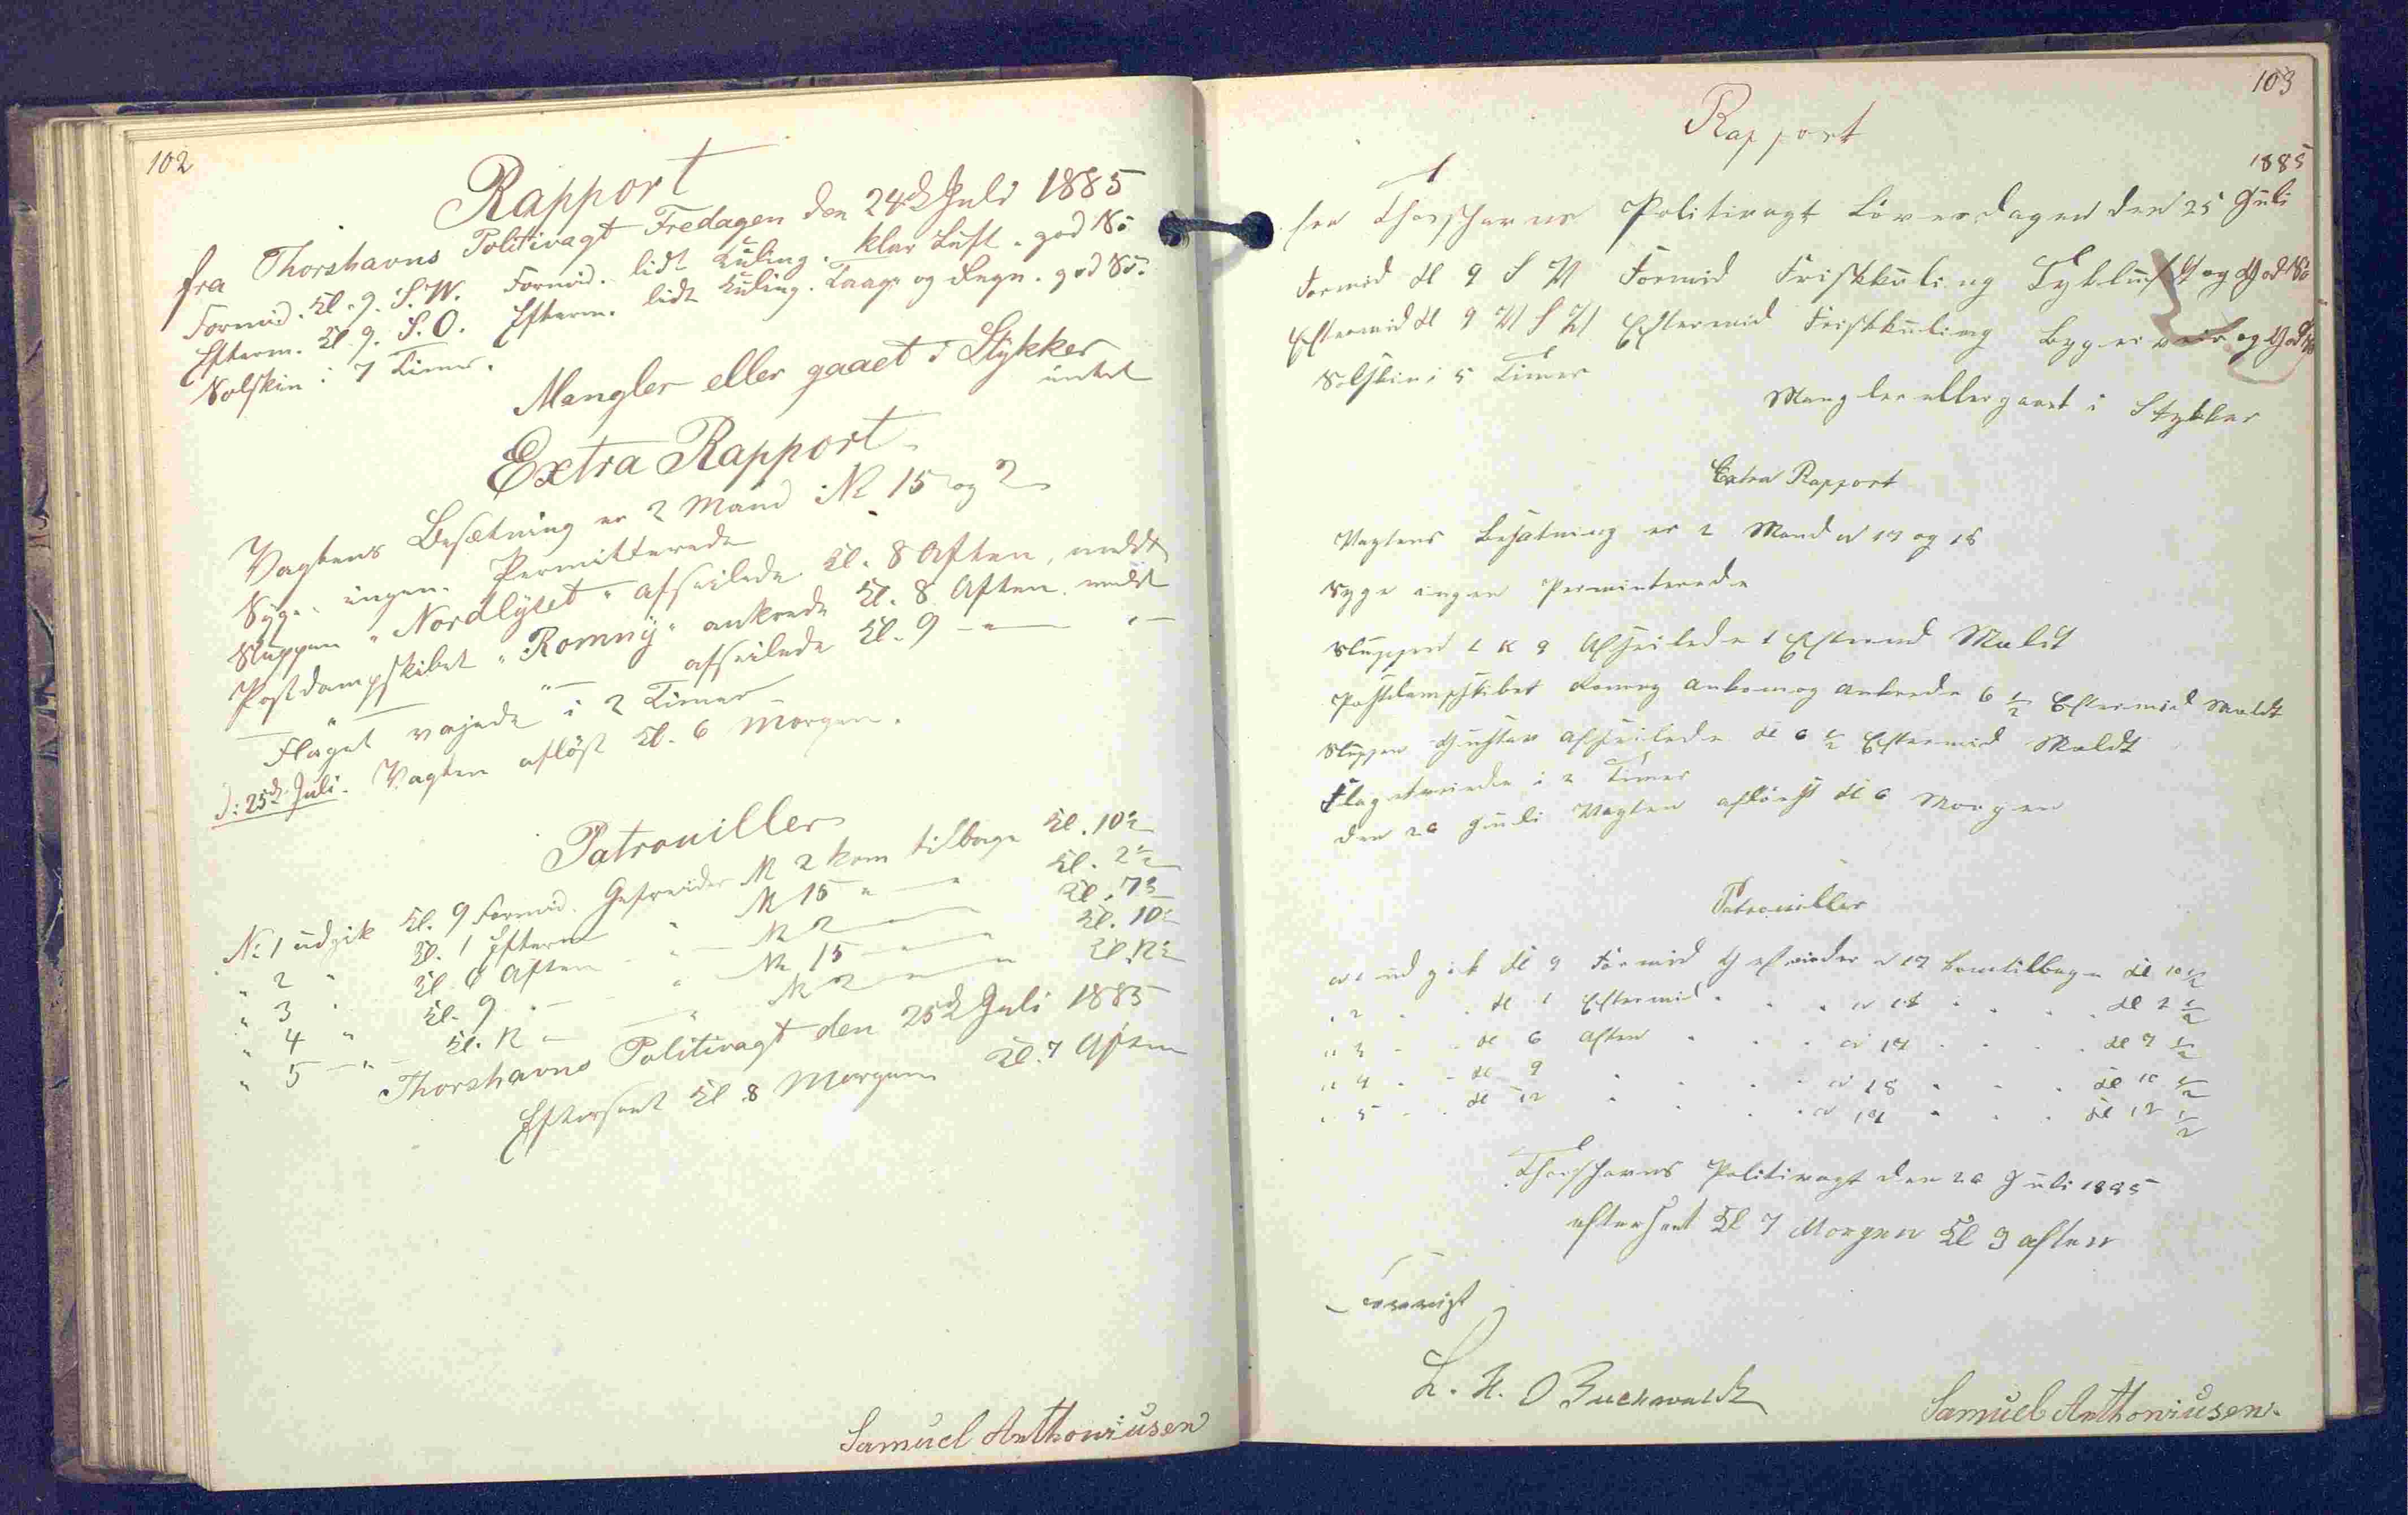 102
Rapport
fra Thorshavns Politivagt Fredagen den 24d Juli 1885
Formid. Kl. 9. S.W. Formid. lidt Kuling. klar Luft. god Sö
Efterm. Kl. 9. S.O. Efterm. lidt Kuling. Taage og Regn. god Sö.
Solskin i 7 Timer.
Mangler eller gaaet i Stykker
intet
Extra Rapport
Vagtens Besætning er 2 Mand № 15 og 2
Syge ingen. Permitterede
Sluppen "Nordlyset" afseilede Kl. 8 Aften, meldt
Postdampskibet "Romny" ankrede Kl. 8 Aften. meldt
" — " — afseilede Kl. 9 — " — " —
Flaget vajede i 2 Timer
d: 25de Juli. Vagten aflöst Kl. 6 Morgen.
Patrouiller
№ 1 udgik Kl. 9 Formid. Gefreider № 2 kom tilbage Kl. 10½
" 2 " Kl. 1 Efterm " № 15 " — " Kl. 2½
" 3 " Kl. 6 Aften " № 2 — " — Kl. 7½
" 4 " Kl. 9 " — " № 15 — " — Kl. 10½
" 5 — " — Kl. 12 " — " № 2 — " — Kl. 12½
Thorshavns Politivagt den 25d Juli 1885
Efterseet Kl 8 Morgen Kl. 7 Aften
Samuel Anthoniusen
103
Rapport
1885
fra Thorshavns Politivagt Löverdagen den 25 Juli
Formid Kl 9 S W Formid Friskkuling Tykluft og God Sö
Eftermid Kl 9 W S W Eftermid Friskkuling Bygerveir og God Sö
Solskin i 5 Timer
Mangler eller gaaet i Stykker
Extra Rapport
Vagtens Besætning er 2 Mand № 17 og 18
Syge ingen Perminterede
Sluppen Afseilede 1 Eftermid Meldt
Postdampskibet Romny Ankom og Ankrede 6 ½ Eftermid Meldt
Sluppen Gustav Afseilede Kl 6 ½ Eftermid Meldt
Flaget veiede i 2 Timer
den 26 Juli Vagten aflöest Kl 6 Morgen
Patrouiller
№ 1 ud gik Kl 9 Formid Gefreider № 17 kom tilbage Kl 10 ½
" 2 " " Kl 1 Eftermid " " " № 18 " " " Kl 2 ½
" 3 " " Kl 6 Aften " " " № 17 " " " Kl 7 ½
" 4 " " Kl 9 " " " " № 18 " " " Kl 10 ½
" 5 " " Kl 12 " " " " № 17 " " " Kl 12 ½
Thorshavns Politivagt den 26 Juli 1885
efterseet Kl 7 Morgen Kl 9 aften
L. H. O Buchwaldt
Samuel Anthoniusen.